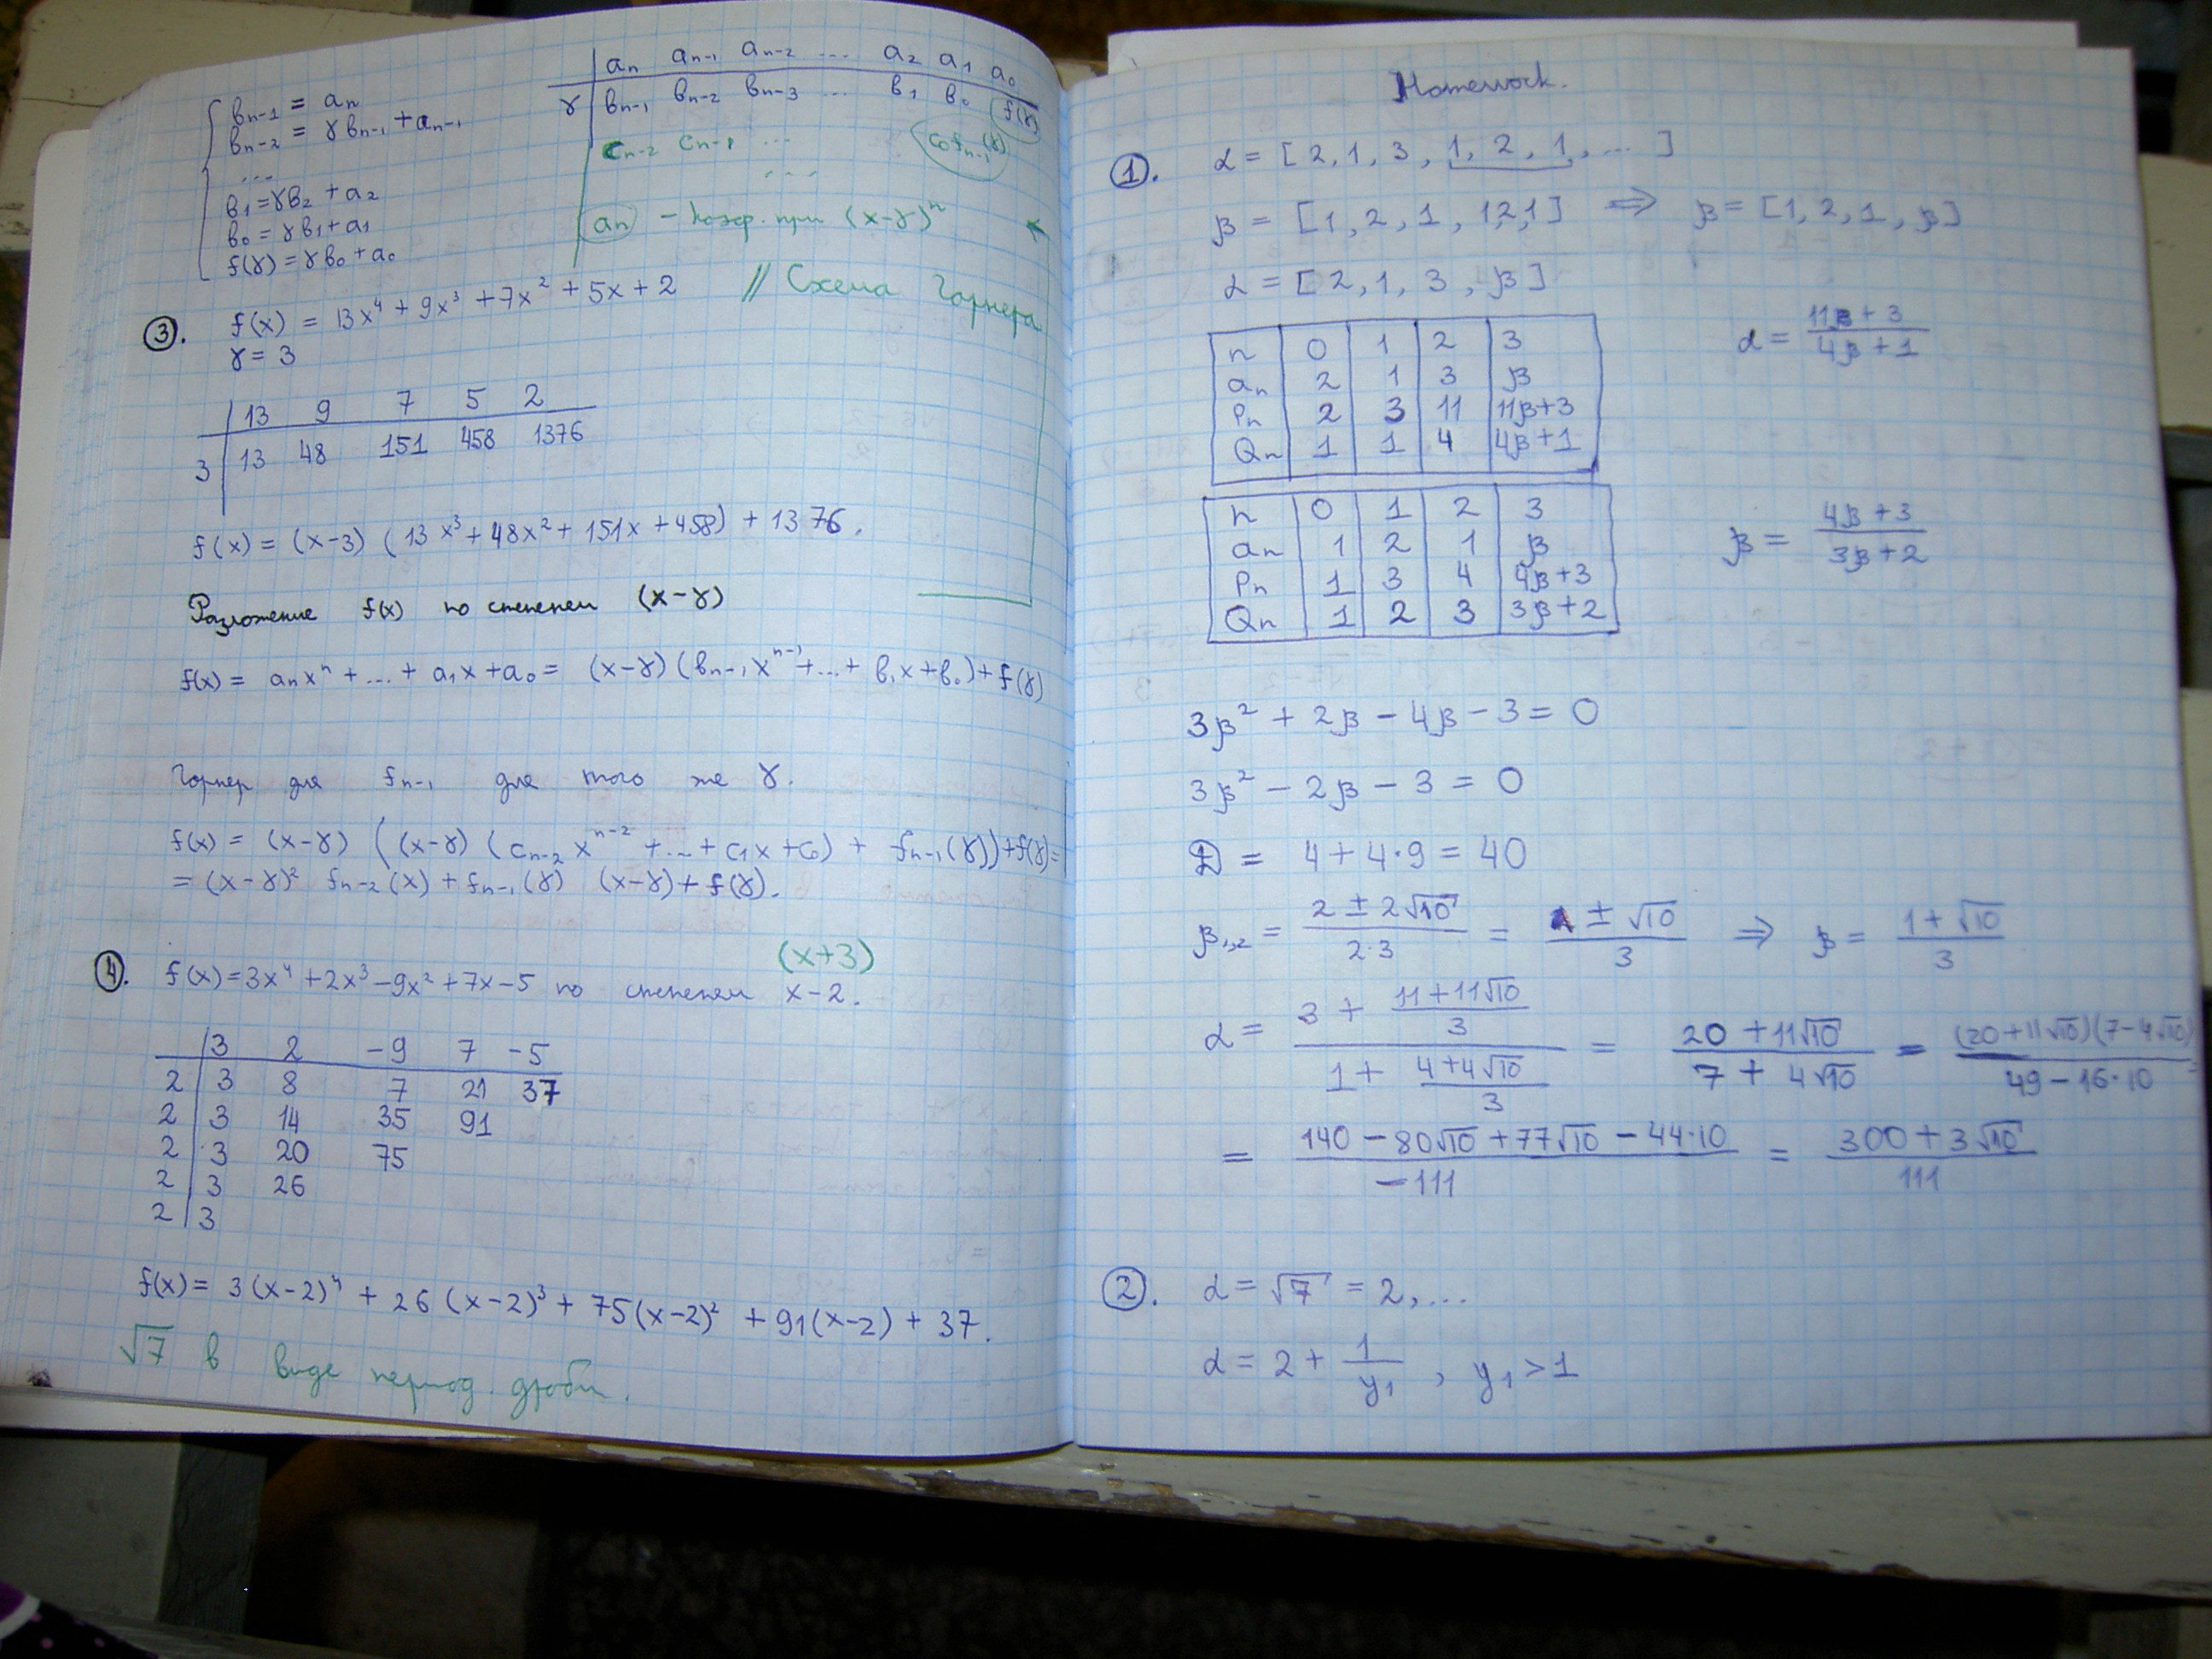 вₙ₋₁ = aₙ
вₙ₋₂ = γвₙ₋₁ + aₙ₋₁
...
в₁ = γв₂ + a₂
в₀ = γв₁ + a₁
f(γ) = γв₀ + a₀
aₙ aₙ₋₁ aₙ₋₂ ... a₂ a₁ a₀
γ вₙ₋₁ вₙ₋₂ вₙ₋₃ ... в₁ в₀ f(γ)
cₙ₋₂ cₙ₋₁ ... c₀ fₙ₋₁(γ)
...
aₙ - коэф. при (x-γ)ⁿ
// Схема Горнера
③. f(x) = 13x⁴ + 9x³ + 7x² + 5x + 2
γ = 3
13 9 7 5 2
3 13 48 151 458 1376
f(x) = (x-3) (13x³ + 48x² + 151x + 458) + 1376.
Разложение f(x) по степеням (x-γ)
f(x) = aₙxⁿ + ... + a₁x + a₀ = (x-γ)(вₙ₋₁xⁿ⁻¹ + ... + в₁x + в₀) + f(γ)
Горнер для fₙ₋₁ для того же γ.
f(x) = (x-γ) ((x-γ) (cₙ₋₂xⁿ⁻² + ... + c₁x + c₀) + fₙ₋₁(γ)) + f(γ) =
= (x-γ)² fₙ₋₂(x) + fₙ₋₁(γ) (x-γ) + f(γ).
(x+3)
④. f(x) = 3x⁴ + 2x³ - 9x² + 7x - 5 по степеням x-2.
3 2 -9 7 -5
2 3 8 7 21 37
2 3 14 35 91
2 3 20 75
2 3 26
2 3
f(x) = 3(x-2)⁴ + 26(x-2)³ + 75(x-2)² + 91(x-2) + 37.
√7 в виде период. дроби.
Homework.
①. α = [2, 1, 3, 1, 2, 1, ...]
β = [1, 2, 1, 1,2,1] ⇒ β = [1, 2, 1, β]
α = [2, 1, 3, β]
n 0 1 2 3
aₙ 2 1 3 β
Pₙ 2 3 11 11β+3
Qₙ 1 1 4 4β+1
α = (11β + 3)/(4β + 1)
n 0 1 2 3
aₙ 1 2 1 β
Pₙ 1 3 4 4β+3
Qₙ 1 2 3 3β+2
β = (4β + 3)/(3β + 2)
3β² + 2β - 4β - 3 = 0
3β² - 2β - 3 = 0
D = 4 + 4·9 = 40
β₁,₂ = (2 ± 2√10)/(2·3) = (1 ± √10)/3 ⇒ β = (1 + √10)/3
α = (3 + (11 + 11√10)/3)/(1 + (4 + 4√10)/3) = (20 + 11√10)/(7 + 4√10) = ((20 + 11√10)(7 - 4√10))/(49 - 16·10) =
= (140 - 80√10 + 77√10 - 44·10)/(-111) = (300 + 3√10)/111
②. α = √7 = 2,...
α = 2 + 1/y₁, y₁ > 1